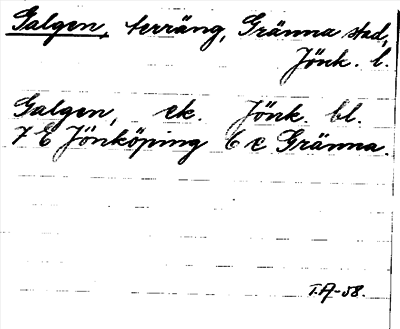 Galgen, terräng, Gränna stad,
Jönk. l.
Galgen, ek. Jönk. bl.
7 E Jönköping 6 e Gränna.
T.A-58.